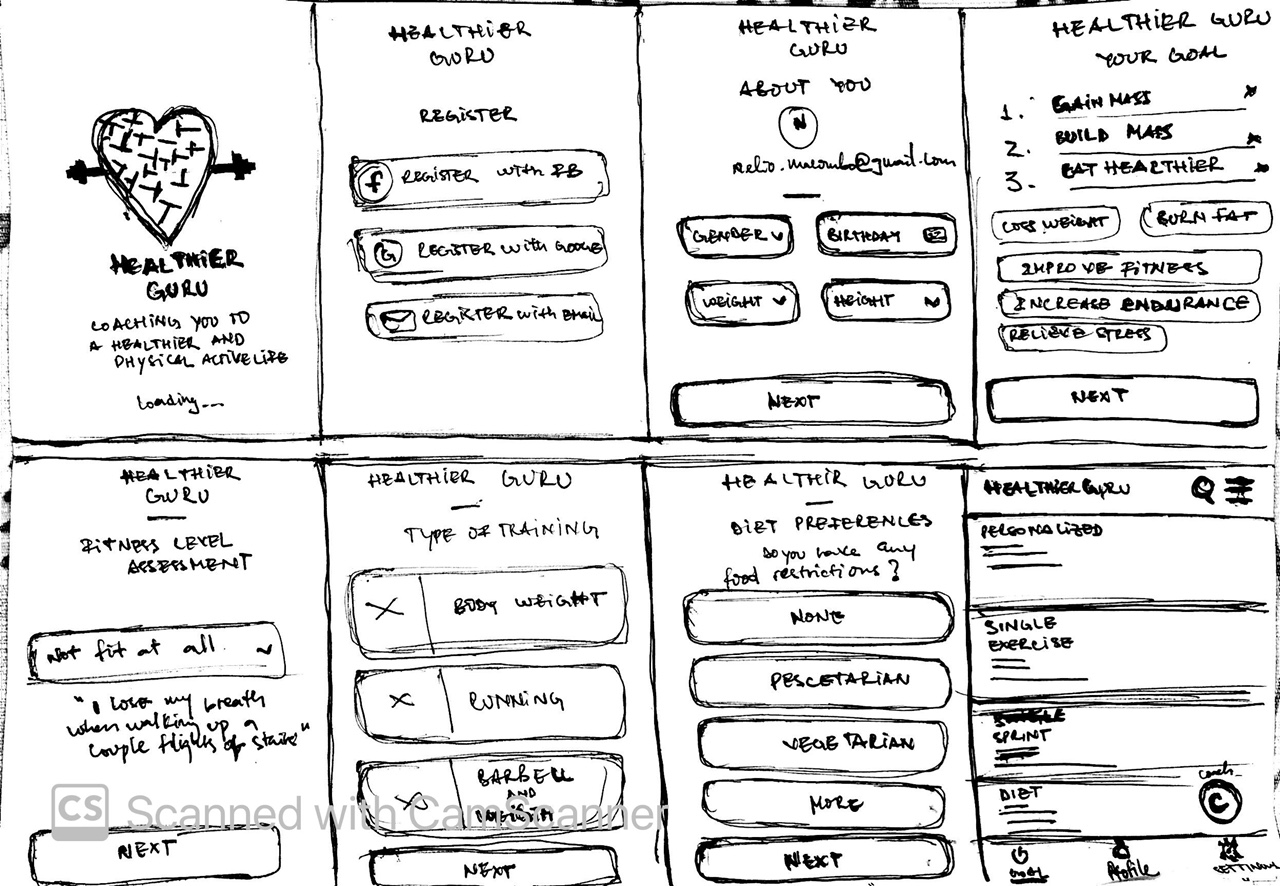 HEALTHIER
GURU
COACHING YOU TO
A HEALTHIER AND
PHYSICAL ACTIVE LIFE
Loading...
HEALTHIER
GURU
REGISTER
f REGISTER with FB
G REGISTER with GOOGLE
REGISTER with EMAIL
HEALTHIER
GURU
ABOUT YOU
N
@gmail.com
GENDER
BIRTHDAY
WEIGHT
HEIGHT
NEXT
HEALTHIER GURU
YOUR GOAL
1. GAIN MASS x
2. BUILD MASS x
3. EAT HEALTHIER x
LOSS WEIGHT
BURN FAT
IMPROVE FITNESS
INCREASE ENDURANCE
RELIEVE STRESS
NEXT
HEALTHIER
GURU
FITNESS LEVEL
ASSESSMENT
Not fit at all
"I lose my breath
when walking up a
couple flights of stairs"
NEXT
HEALTHIER GURU
TYPE OF TRAINING
BODY WEIGHT
RUNNING
BARBELL
AND
NEXT
HEALTHIR GURU
DIET PREFERENCES
Do you have any
food restrictions?
NONE
PESCETARIAN
VEGETARIAN
MORE
NEXT
HEALTHIER GURU
PERSONALIZED
SINGLE
EXERCISE
SPRINT
DIET
Coach
C
Profile
SETTINGS
CS Scanned with CamScanner